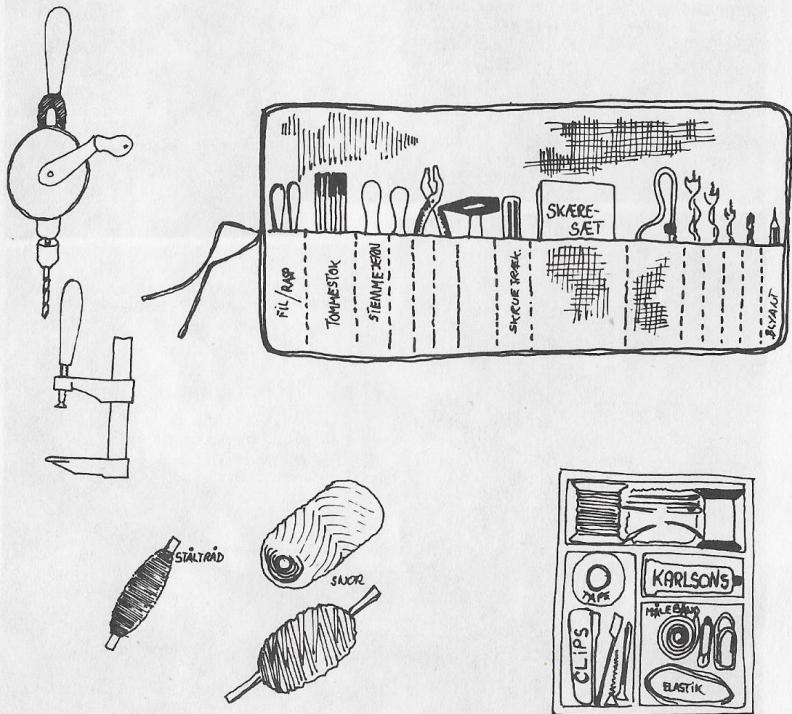 SKÆRE-
SÆT
FIL/RASP
TOMMESTOK
STEMMEJERN
SKRUETRÆK.
BLYANT
STÅLTRÅD
SNOR
TAPE
KARLSONS
MÅLEBÅND
CLIPS
ELASTIK